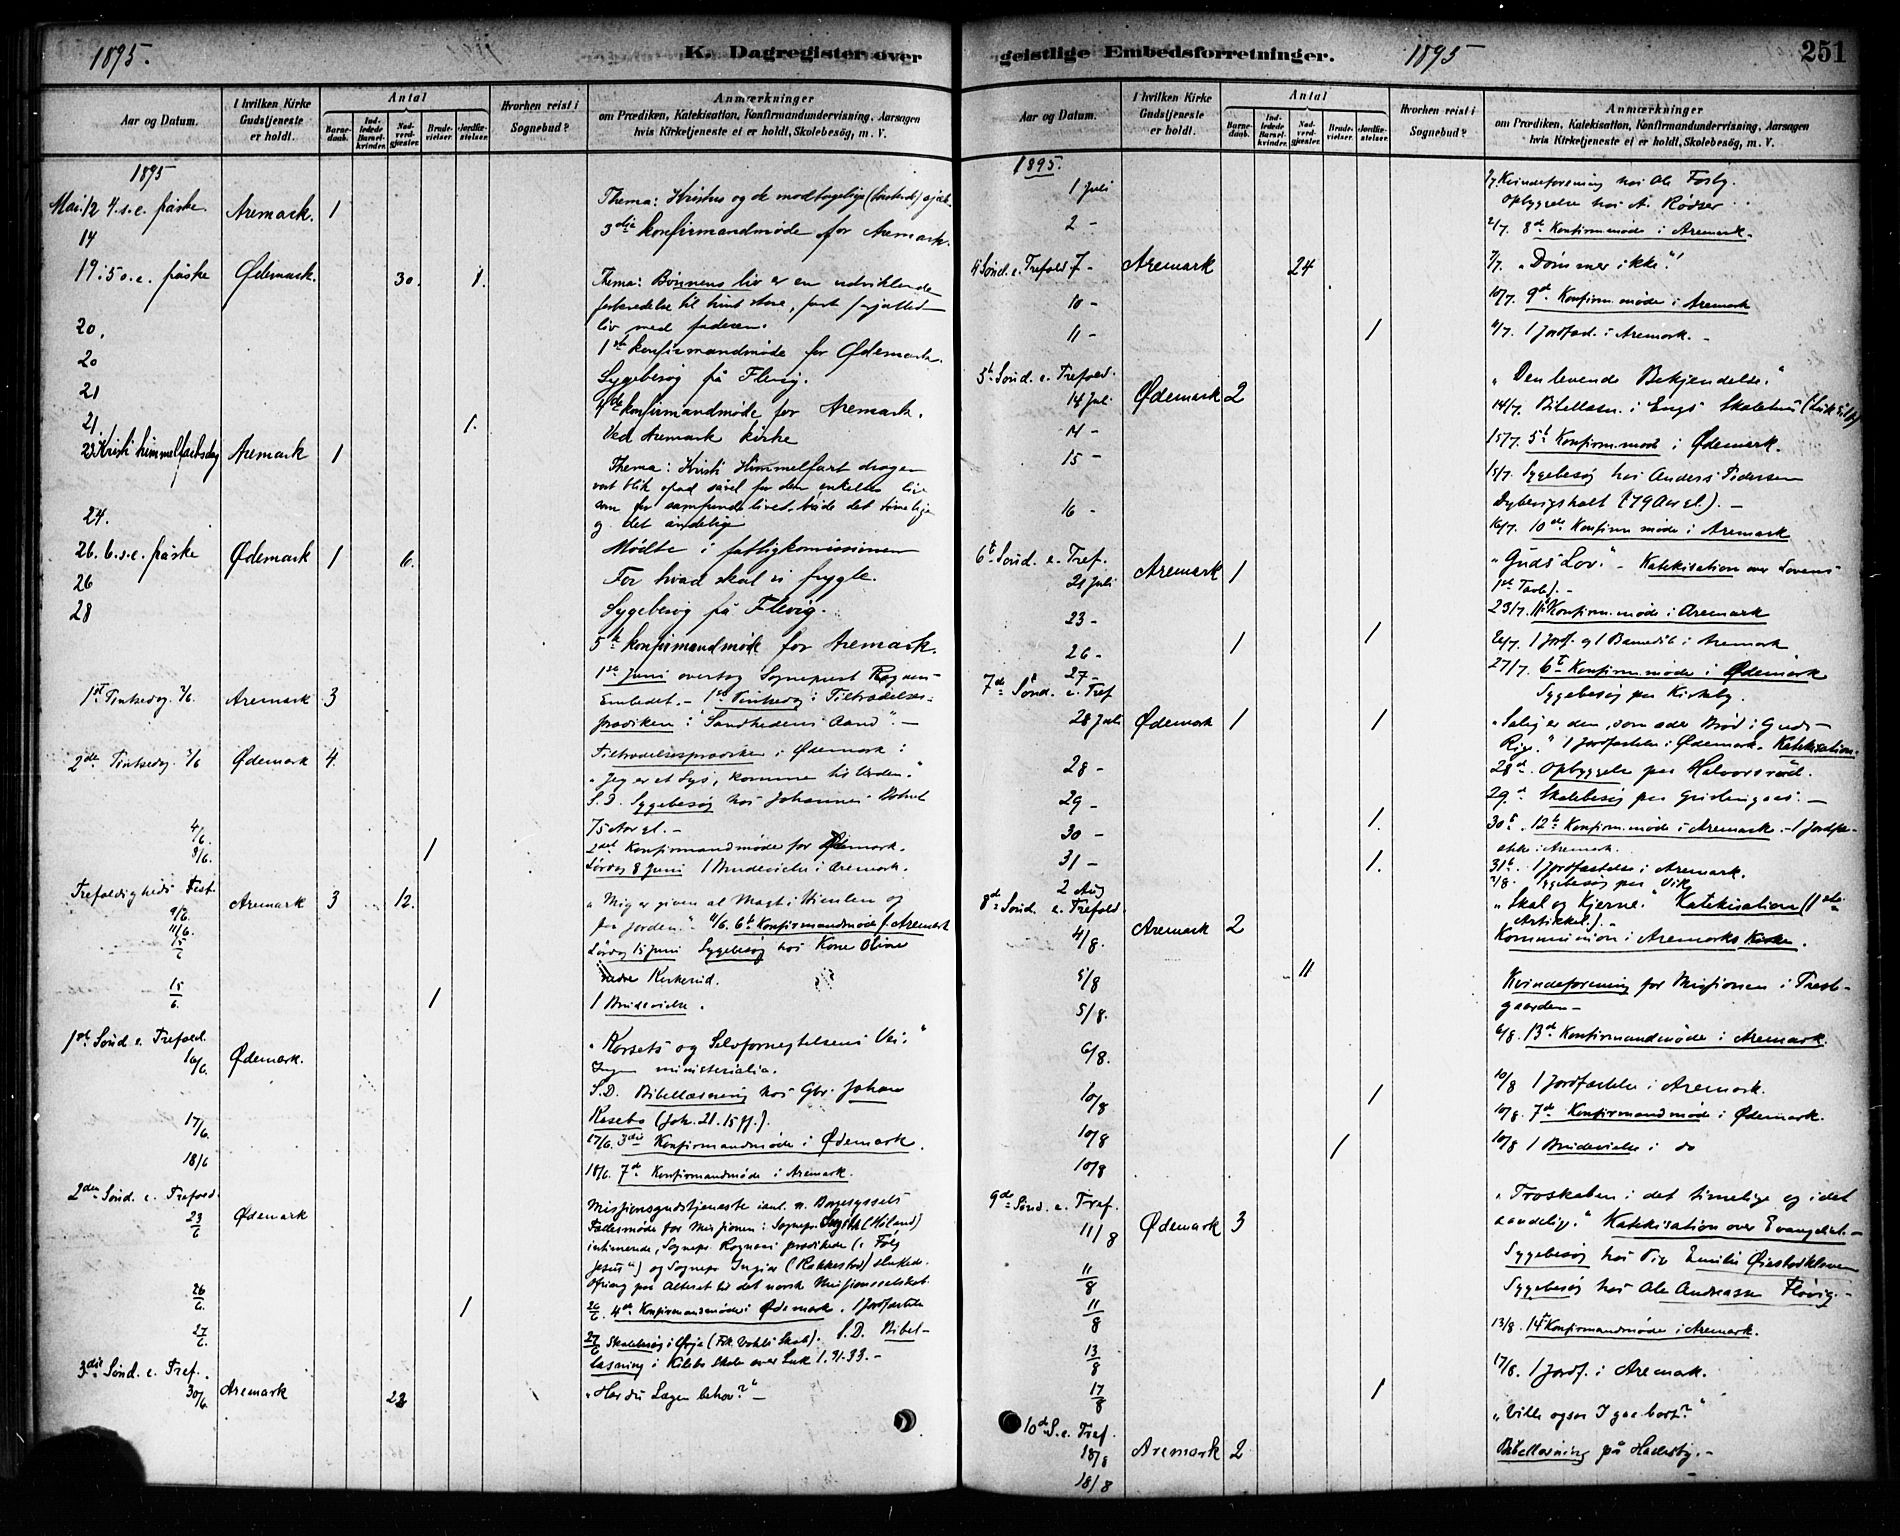 1895.
K. Dagregister over
Aar og Datum.
I hvilken Kirke Gudstjeneste er holdt.
Antal
Barne-daab.
Ind-ledede Barsel-kvinder.
Nad-verd-gjester.
Brude-vielser.
Jordfæ-stelser.
Hvorhen reist i Sognebud?
Anmærkninger
om Prædiken, Katekisation, Konfirmandundervisning, Aarsagen
hvis Kirketjeneste ei er holdt, Skolebesøg, m. V.
1895
Mai. 12 4. s. e. påske Aremark. 1 Thema: Kristus og de modtagelige
14 3die konfirmandmøde for Aremark.
19: 5 s. e. påske Ødemark. 30. 1. Thema: Bønnens liv er en udviklende
forberedelse til hint store,
liv med faderen.
20. 1ste konfirmandmøde for Ødemark.
20 Sygebesøg på Flevig.
21 4de konfirmandmøde for Aremark.
21. 1. Ved Aremark kirke
23 Kristi himmelfartsdag Aremark 1 Thema: Kristi Himmelfart drager
vort blik opad såvel for den enkeltes liv
som for samfundslivet, både det timelige
og det åndelige
24. Mødte i fattigkomissionen
26. 6. s. e. påske Ødemark 1 6. For hvad skal vi frygte.
26 Sygebesøg på Flevig.
28 5te konfirmandmøde for Aremark.
1ste Juni overtog Sogneprest Rognen
1st Pintsedag 2/6. Aremark 3 Embedet. – 1ste Pintsedag: Tiltrædelses-
prædiken: "Sandhedens Aand". –
2den Pintsedag 3/6 Ødemark 4. Tiltrædelsesprædiken i Ødemark:
"Jeg er et Lys, kommen til Verden."
S. D. Sygebesøg hos Johannes
75 Aar gl. –
4/6. 2det Konfirmandmøde for Ødemark.
8/6. 1 Lørdag 8 Juni 1 Brudevielse i Aremark.
Trefoldigheds Fest.
9/6. Aremark 3 12. "Mig er given al Magt i Himlen og
11/6. paa Jorden." 11/6. 6te Konfirmandmøde f. Aremark
15/6 Lørdag 15 Juni Sygebesøg hos Kone Oline
nedre Kirkerud.
15/6. 1 1 Brudevielse.
1ste Sønd. e. Trefold.
16/6. Ødemark. "Korsets og Selvfornegtelsens Vei."
Ingen ministerialia.
S. D. Bibellæsning hos Gbr. Johan
Kasebo (Joh. 21. 15 ff.).
17/6. 17/6. 3die Konfirmandmøde i Ødemark.
18/6 18/6. 7de Konfirmandmøde i Aremark.
2den Sønd. e. Trefold.
23/6 Ødemark Missionsgudstjeneste
Fællesmøde for Missionen: Sognepr. (Høland)
intimerede, Sognepr. Rognen prædikede (: Følg
Jesus") og Sognepr. Ingier (Rakkestad) sluttede.
Ofring paa Alteret til det norske Missionsselskab.
26/6. 1 26/6 4de Konfirmandmøde i Ødemark. 1 Jordfæstelse
27/6. 27/6 Skolebesøg i Ørje. S. D. Bibel-
læsning i Kilebo Skole over Luk 1. 31-33. –
3die Sønd. e. Tref.
30/6. Aremark 22 "Har du Lægen behov?" –
geistlige Embedsforretninger. 1895 251
Aar og Datum.
I hvilken Kirke Gudstjeneste er holdt.
Antal
Barne-daab.
Ind-ledede Barsel-kvinder.
Nad-verd-gjester.
Brude-vielser.
Jordfæ-stelser.
Hvorhen reist i Sognebud?
Anmærkninger
om Prædiken, Katekisation, Konfirmandundervisning, Aarsagen
hvis Kirketjeneste ei er holdt, Skolebesøg, m. V.
1895.
1 Juli 1/7 Kvindeforening hos Ole Fosby.
Opbyggelse hos A. Rødser
2 – 2/7. 8de Konfirm.møde i Aremark.
4 Sønd. e. Trefold 7 – Aremark 24 7/7. "Dømmer ikke."
10 – 10/7. 9de Konfirm.møde i Aremark
11 – 1 11/7. 1 Jordfæst. i Aremark. –
5te Sønd. e. Trefold. "Den levende Bekjendelse."
14 Juli Ødemark 2 14/7. Bibellæsn. i Engs Skolehus
14 – 15/7. 5te Konfirm.møde i Ødemark.
15 – 15/7. Sygebesøg hos Anders Pedersen
(79 Aar gl.). –
16 – 16/7. 10de Konfirm.møde i Aremark
6te Sønd. e. Tref. "Guds Lov." – Katekisation over Lovens
21 Juli Aremark 1 1ste Tavle). –
23 – 23/7. 11te Konfirm.møde i Aremark
26 – 1 1 26/7. 1 Jordf. og 1 Barnedåb i Aremark
27 – 27/7. 6te Konfirm.møde i Ødemark
7de Sønd. e. Tref Sygebesøg paa Kirkeby.
28 Juli Ødemark 1 1 "Salig er den, som æder Brød i Guds
Rige." 1 Jordfæstelse i Ødemark. Katekisation.
28 – 28de. Opbyggelse paa Halvorsrød.
29 – 29de Skolebesøg paa –
30 – 1. 30te. 12te Konfirm.møde i Aremark. – 1 Jordfæ-
stelse i Aremark.
31 – 1. 31te. 1 Jordfæstelse i Aremark.
2 Aug 2/8. Sygebesøg paa Vik
8de Sønd. e. Trefold. "Skal og Kjerne." Katekisation (1ste
4/8. Aremark 2 Artikkel). –
Kommunion i Aremarks Kirke.
5/8 11 Kvindeforening for Missionen i Prest-
5/8. gaarden –
6/8. 6/8. 13de Konfirmandmøde i Aremark
10/8 1 10/8 1 Jordfæstelse i Aremark.
10/8 10/8. 7de Konfirmandmøde i Ødemark.
10/8 1 10/8 1 Brudevielse i do
9de Sønd. e. Tref. "Troskaben i det timelige og i det
11/8 Ødemark 3 aandelige." Katekisation over Evangeliet. –
11/8 Sygebesøg hos Pige Emilie
11/8 Sygebesøg hos Ole Andreassen Fløvig. –
13/8 13/8. 14de Konfirmandmøde i Aremark.
17/8 1 17/8. 1 Jordf. i Aremark.
10de S. e. Tref. "Ville ogsaa I gaa bort?"
18/8 Aremark 2 Bibellæsning på Haderby. –
18/8